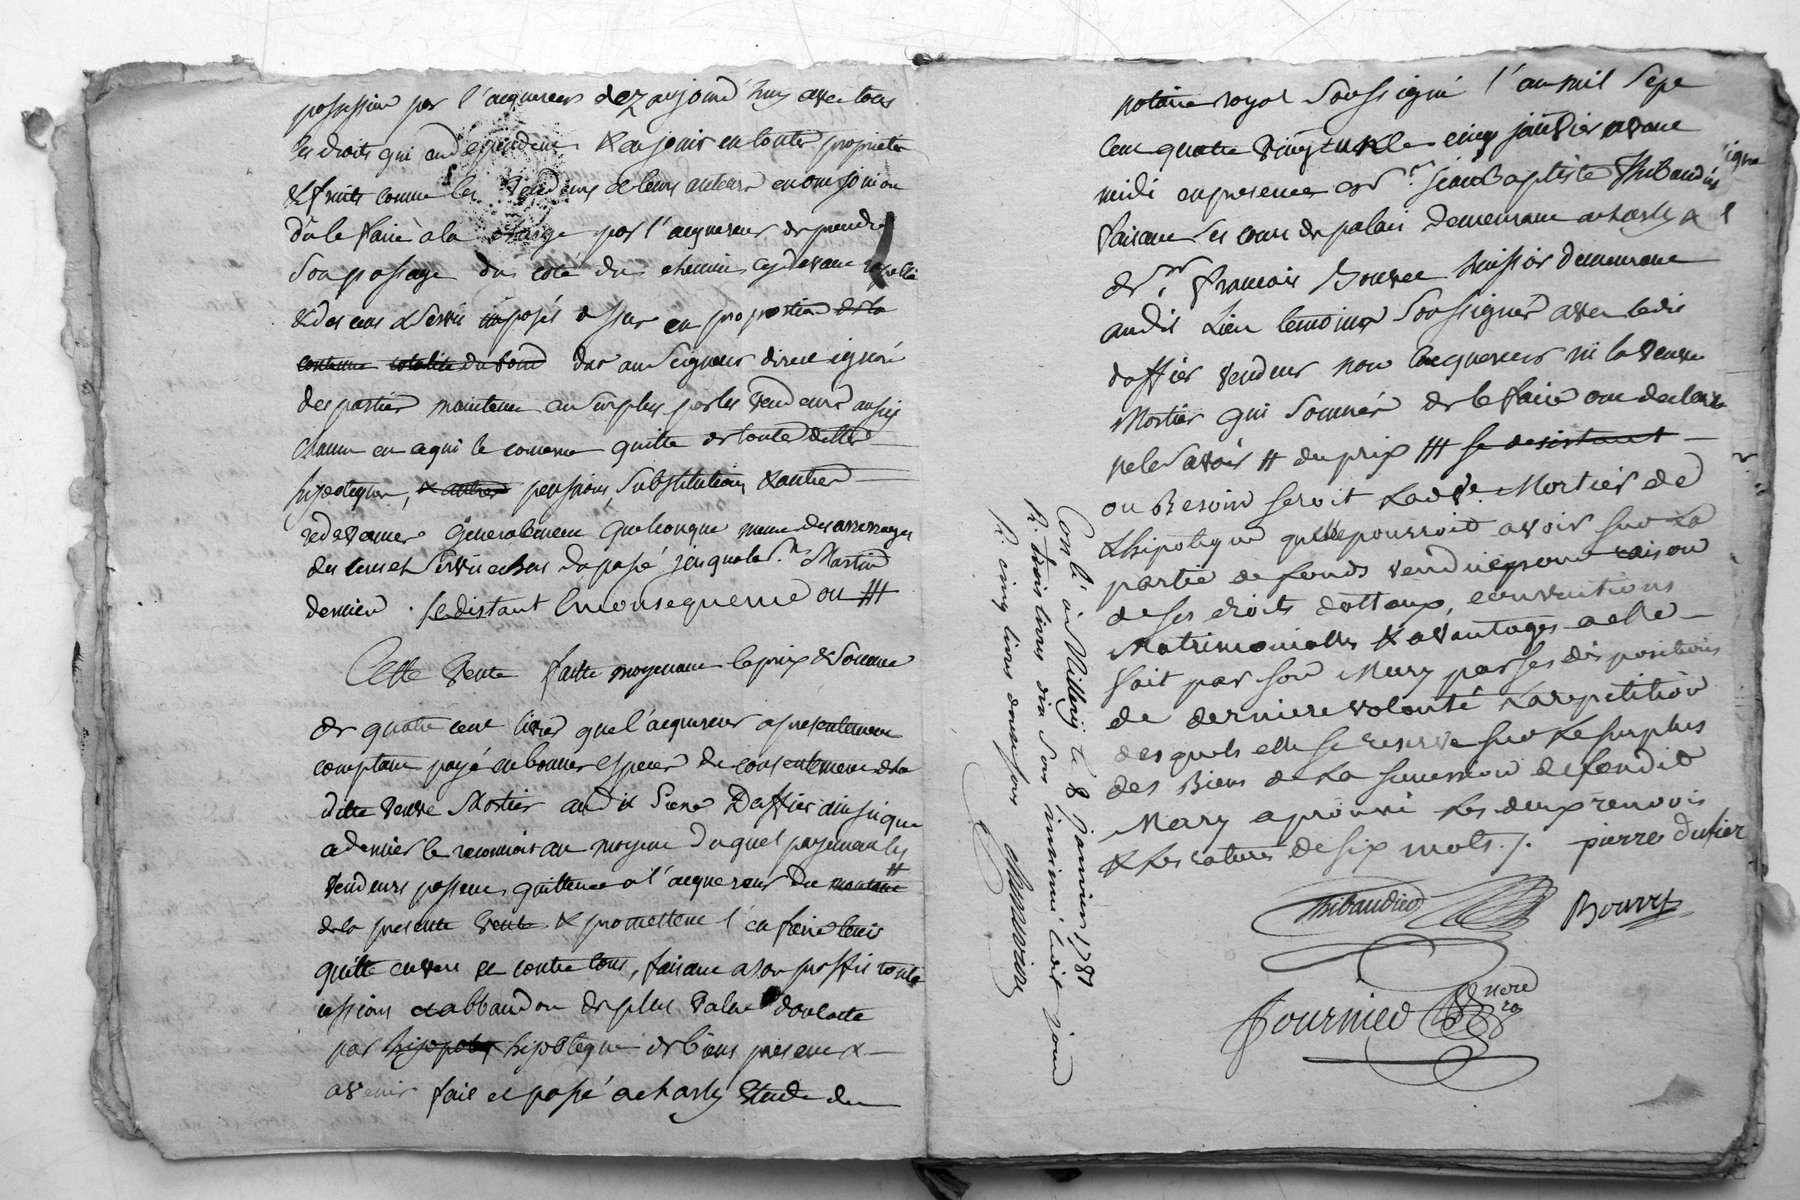 possession par l'acquereur dez aujourd'huy avec tous
les droits qui en dependent & en jouir en toutes proprietes
& fruits comme les vendeurs & leurs auteurs en ont joui ou
dû le faire à la charge par l'acquereur de prendre
son passage du coté du chemin cydevant
& des cens & servis imposés dessus en proportion de la
contenue totalité du fond dus au seigneur direct ignoré
des parties maintenu au surplus par les vendeurs ainsy
chacun en a qui le concerne quitte de toutes dettes
hypoteques, & autres pensions, substitutions & autres
redevances generalement quelconque meme des arrerages
des cens et servis echus du passé jusqua la St. Martin
dernier . se distant en consequence ou ###
Cette vente faitte moyenant le prix & somme
de quatre cent livres que l'acquereur a presentement
comptant payé en bonnes especes du consentement de la
ditte veuve Mortier audit Sieur Daffier ainsi que
ce dernier le reconnoit au moyen duquel payement les
vendeurs passent quittance a l'acquereur du montant #
de la presente vente & promettent l'en faire tenir
quitte envers & contre tous, faisant a son proffit toutes
cessions & abbandon de plus value d'oulatte
par hypoteq hypoteque de biens presents &
avenir fait et passé a charly Etude du
notaire royal soussigné l'an mil sept
cent quatre vingt un & le cinq janvier avant
midi en presence de sr. Jean Baptiste Thibaudier
faisant ses cours de palais demeurant a charly &
de sr. francois Bouvet huissier demeurant
audit lieu temoins soussignés avec ledit
daffier vendeur non l'acquereur ni la veuve
Mortier qui sommés de le faire ont declaré
ne le savoir # du prix ### se desistant
ou Besoin seroit Ladve. Mortier de
Lhipoteque quelle pourroit avoir sur La
partie de fonds vendue pour raison
de ses droits dottaux, conventions
Matrimonialles & avantages a elle
fait par son Mary par ses dispositions
de derniere volonté La repetition
desquels elle se reserve sur Le surplus
des Biens de La succession de fendit
Mary aprouvé Les deux renvois
& Les ratures de six mots ./. pierre dafier
Thibaudier
Bouvet
Fournier nore
Con lé à Millery le 8 janvier 1781
R. trois livres dix sous
R. cinq livres douze sous